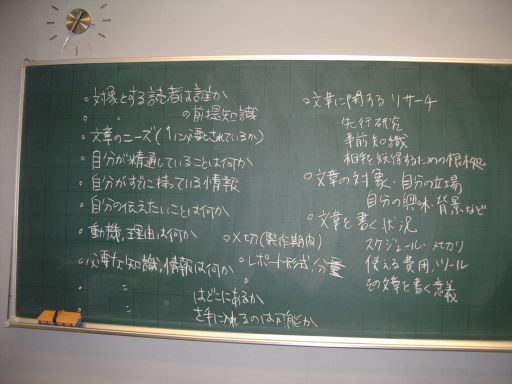 ○対象とする読者は誰か
○ 〃 の前提知識
○文章のニーズ(1に必要とされているか)
○自分が精通していることは何か
○自分がすでに持っている情報
○自分の伝えたいことは何か
○動機、理由は何か
○必要な知識、情報は何か
○ 〃 はどこにあるか
○ 〃 を手に入れるのは可能か
○〆切(製作期間)
○レポート形式、分量
○
○文章に関するリサーチ
先行研究
事前知識
相手を説得するための根拠
○文章の対象・自分の立場
自分の興味・背景など
○文章を書く状況
スケジュール・〆切り
使える費用、ツール
その文章を書く意義